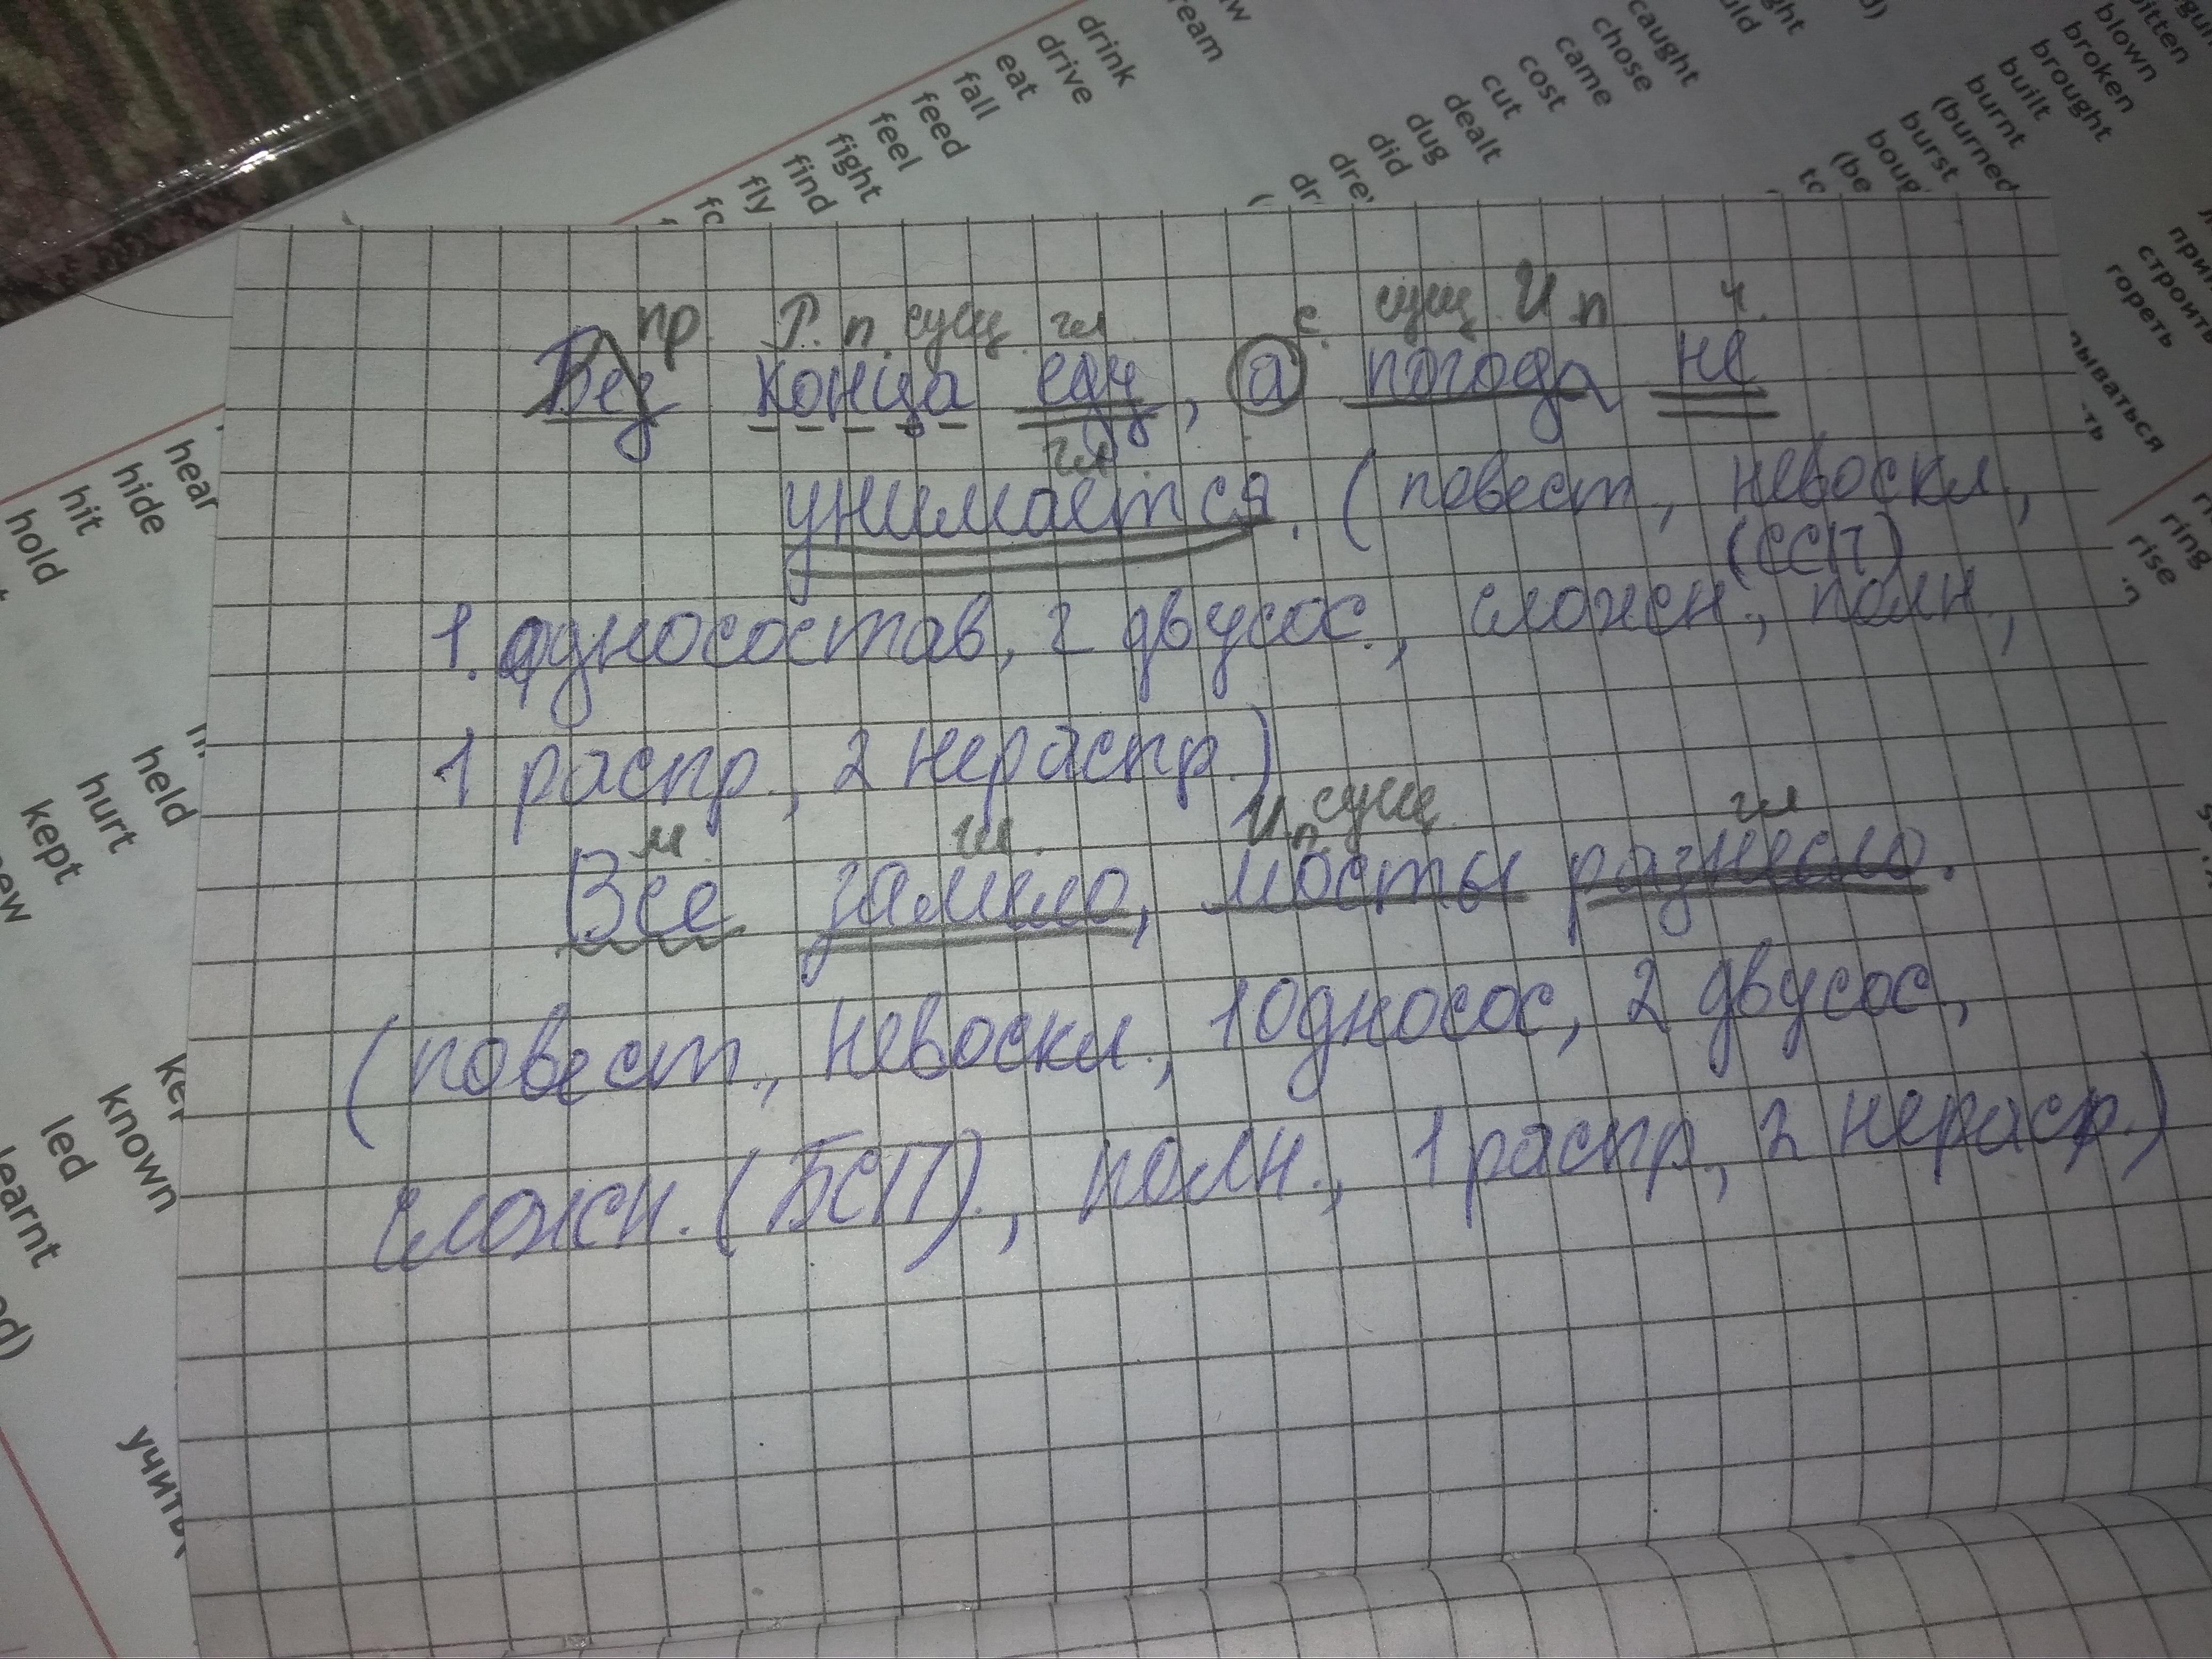 drink
drive
eat
fall
feed
feel
fight
find
fly
ream
caught
chose
came
cost
cut
dealt
dug
did
blown
broken
brought
built
burnt
(burned
burst
(be
строить
гореть
ring
rise
hear
hide
hit
hold
held
hurt
kept
known
led
learnt
пр. Р. п. сущ. гл. с. сущ. И п ч.
Без конца еду, а погода не
гл.
унимается. (повест., невоскл.,
(ССП)
1. односостав, 2 двусос., сложн., полн.,
1 распр., 2 нераспр.)
м. гл. И п. сущ. гл
Все замело, мосты разнесло.
(повест., невоскл., 1 односос, 2 двусос,
сложн. (БСП)., полн., 1 распр., 2 нераср.)